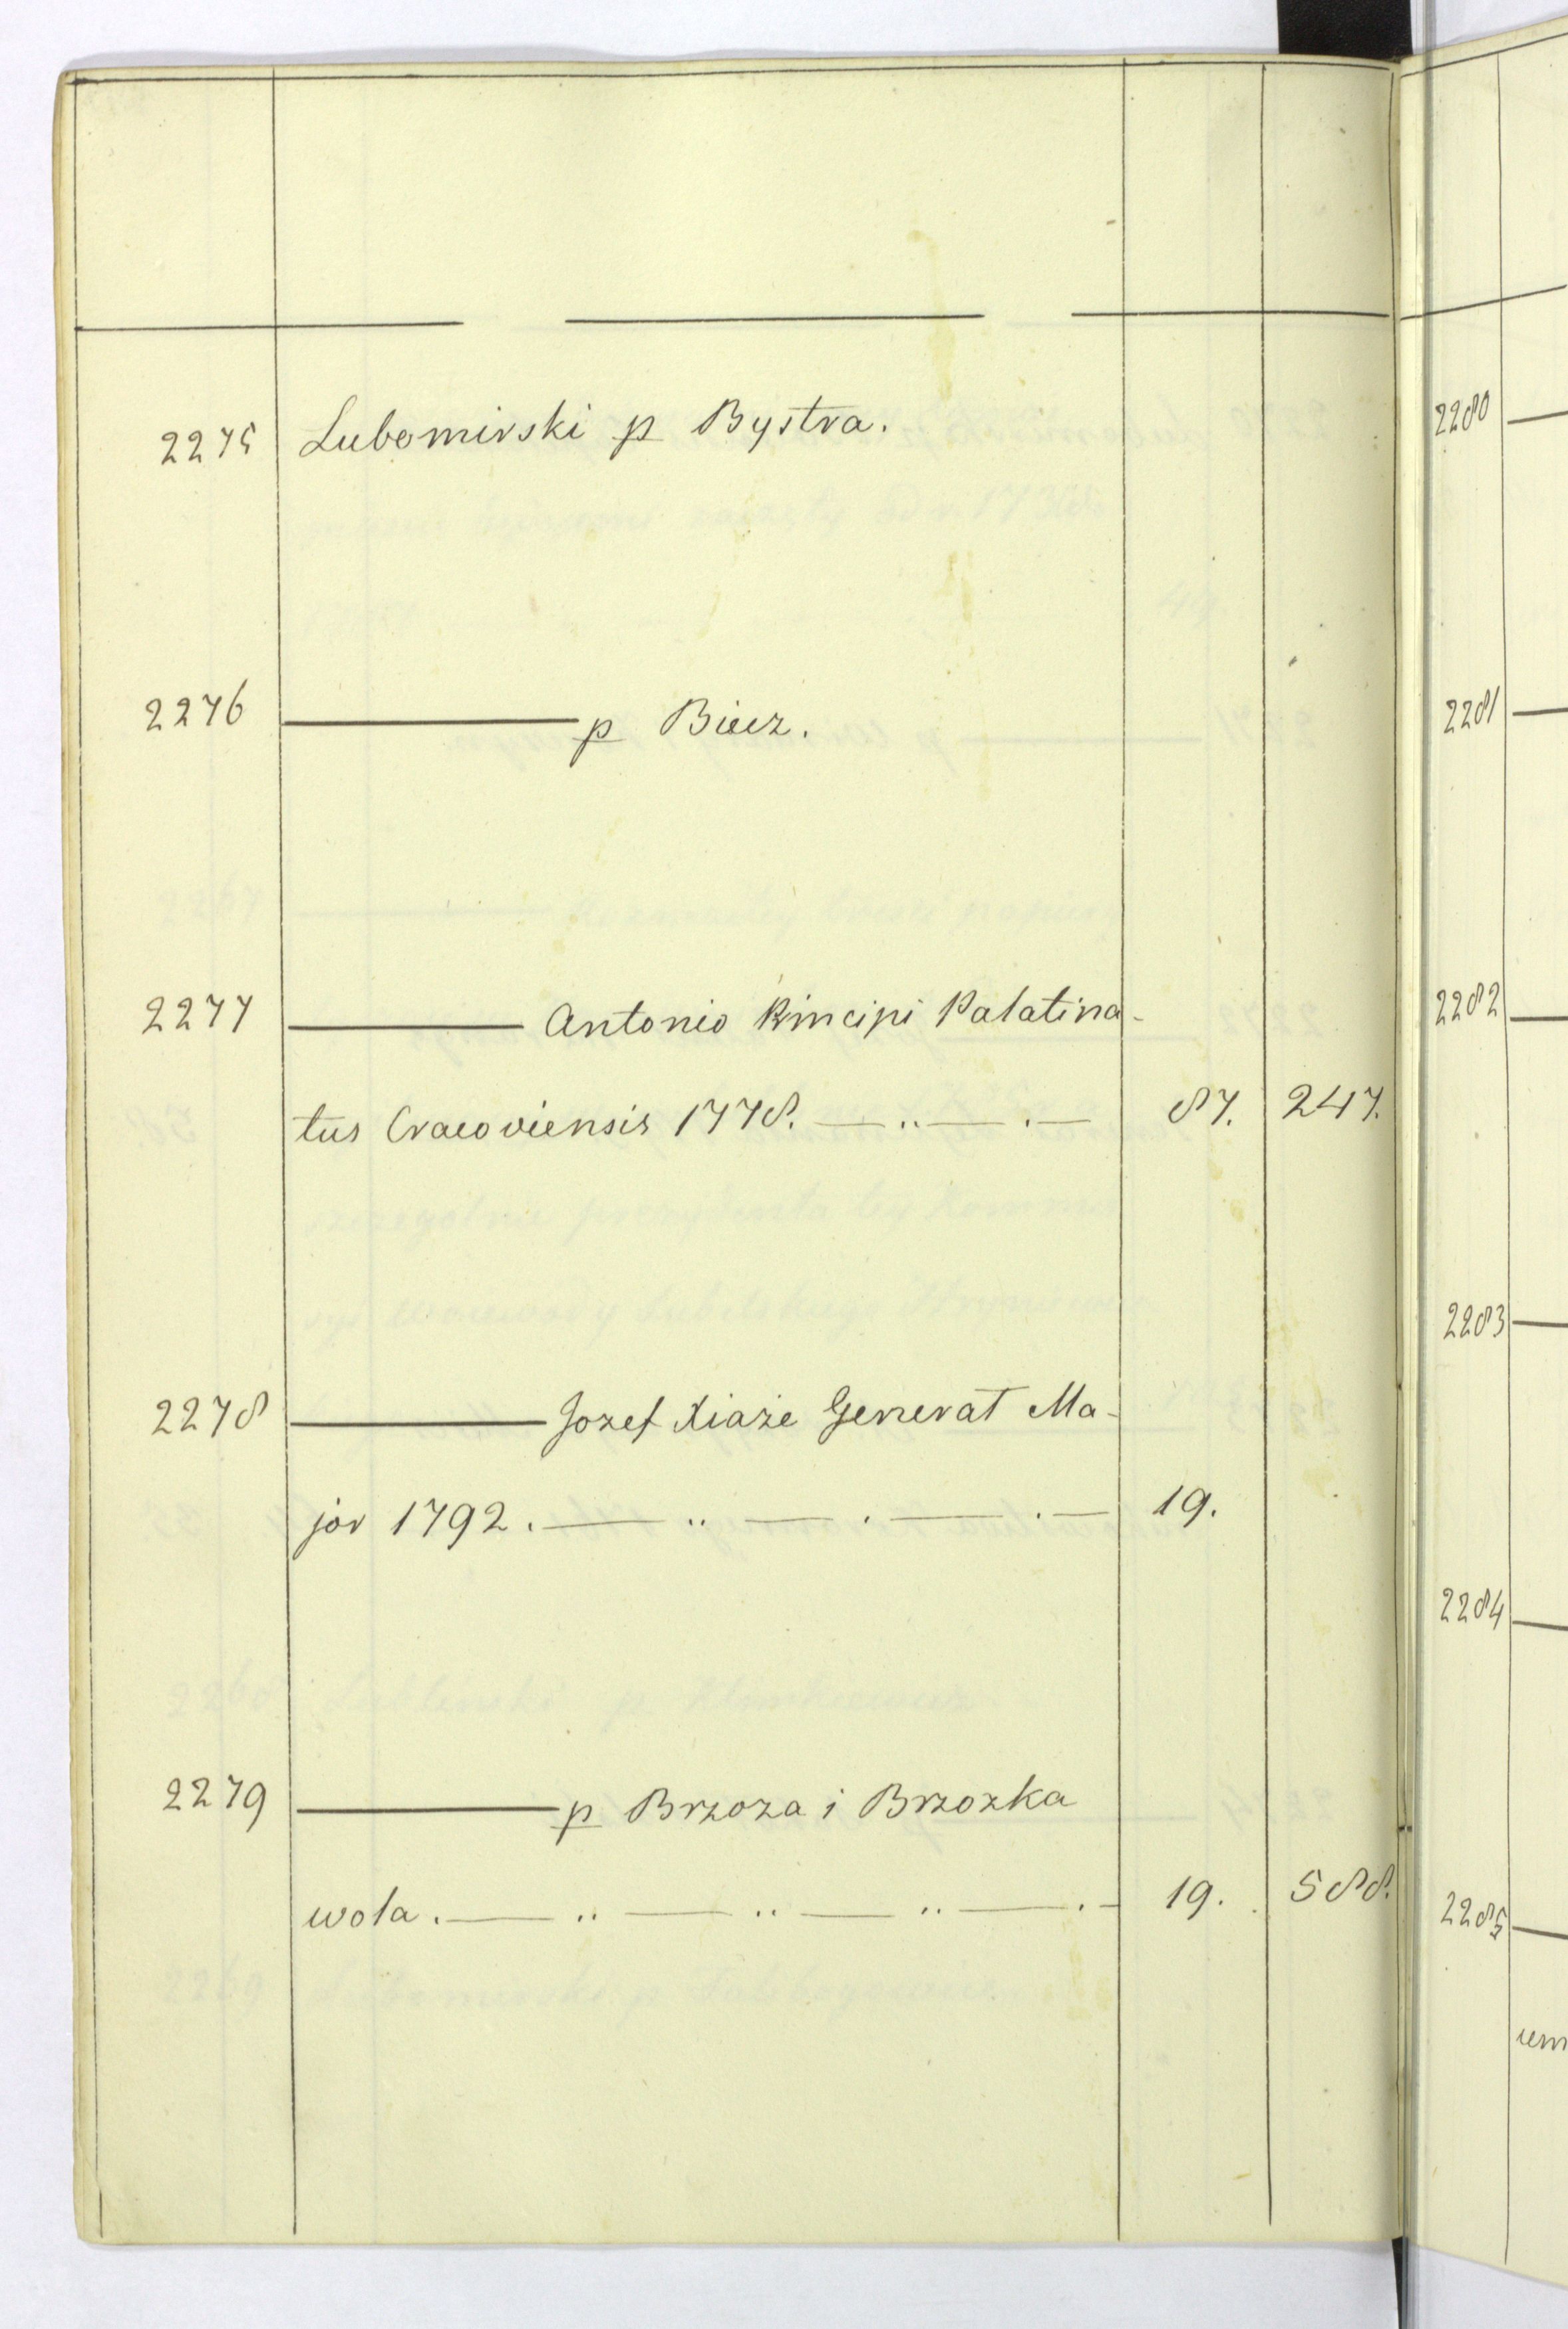 2275 Lubomirski p Bystra.
2276 ——— p Biecz.
2277 ——— Antonio Principi Palatina-
tus Cracoviensis 1778. — .. — . — 87. 247.
2278 ——— Jozef Xiaże Generat Ma-
jor 1792. — .. — . — . — 19.
2279 ——— p Brzoza i Brzozka
wola. — .. — .. — .. — . - 19. 588.
2280 —
2281 —
2282 —
2283 —
2284 —
2285 —